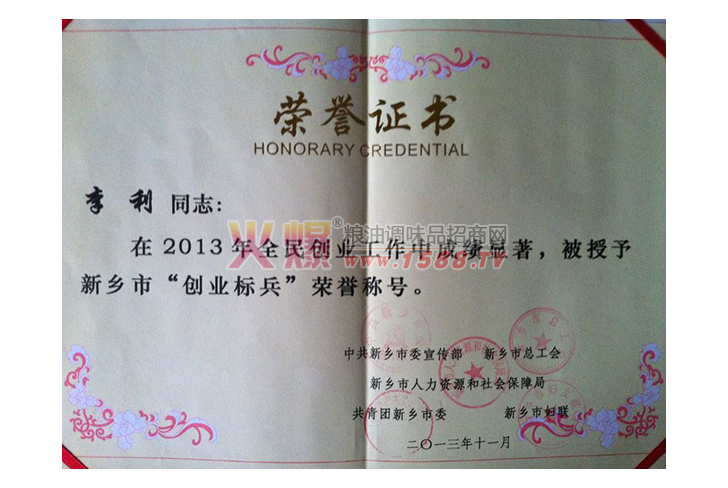 荣誉证书
HONORARY CREDENTIAL
李利 同志：
在2013年全民创业工作中成绩显著，被授予
新乡市“创业标兵”荣誉称号。
火爆®粮油调味品招商网
www.1588.TV
中共新乡市委宣传部 新乡市总工会
新乡市人力资源和社会保障局
共青团新乡市委 新乡市妇联
二〇一三年十一月